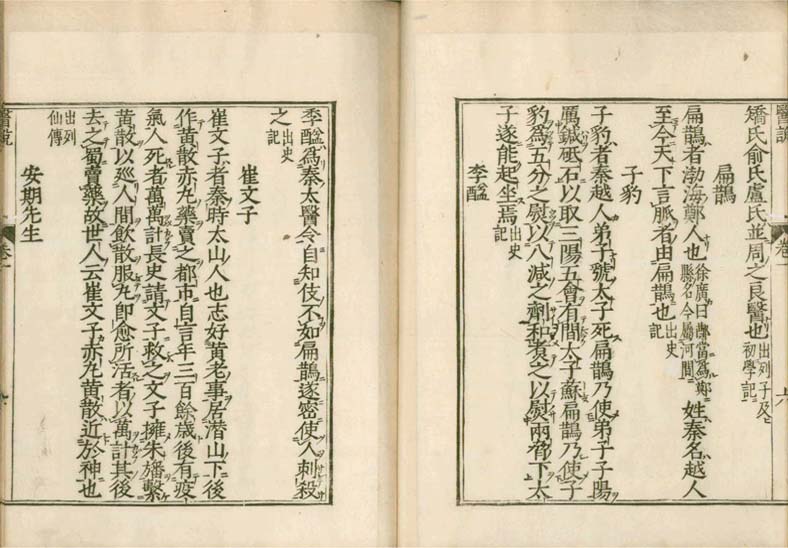 醫說 卷一 六
矯氏俞氏盧氏並周之良醫也出列子及初學記
扁鵲
扁鵲者渤海鄭人也徐廣曰鄭當爲鄚縣名今屬河間姓秦名越人
至今天下言脈者由扁鵲也出史記
子豹
子豹者秦越人弟子虢太子死扁鵲乃使弟子子陽
厲鍼砥石以取三陽五會有間太子蘇扁鵲乃使子
豹爲五分之熨以八減之劑和煑之以熨兩脅下太
子遂能起坐焉出史記
李醯
李醯爲秦太醫令自知伎不如扁鵲遂密使人刺殺
之出史記
崔文子
崔文子者秦時太山人也志好黃老事居潜山下後
作黃散赤丸藥賣之都市自言年三百餘歲後有疫
氣人死者萬萬計長史請文子救之文子擁朱旛繫
黃散以廵人間飲散服丸即愈所活者以萬計其後
去之蜀賣藥故世人云崔文子赤丸黃散近於神也
出列仙傳
安期先生
醫說 卷一